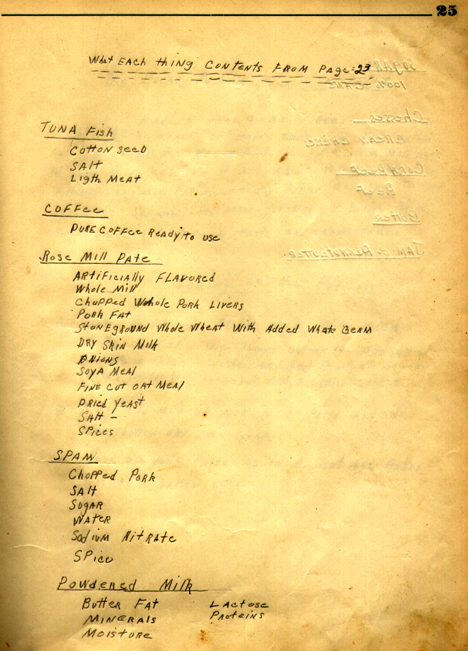 25
What Each thing Contents From Page: 23
Tuna Fish
Cotton seed
Salt
Ligth Meat
Coffee
Pure Coffee Ready to use
Rose Mill Pate
Artificially Flavored
Whole Mill
Chopped Whole Pork Livers
Pork Fat
Stoneground Whole Wheat With Added Wheat Germ
Dry Skin Milk
Onions
Soya Meal
Fine Cut Oat Meal
Dried Yeast
Salt -
Spices
Spam
Chopped Pork
Salt
Sugar
Water
Sodium Nitrate
Spice
Powdered Milk
Butter Fat Lactose
Minerals Proteins
Moisture